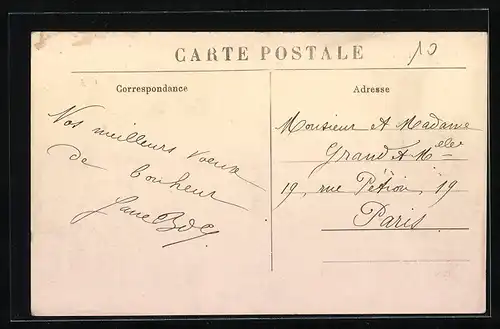 10
CARTE POSTALE
Correspondance
Adresse
Nos meilleurs voeux
de bonheur
Jane
Monsieur et Madame
Grand et Melles
19, rue Pétion, 19
Paris